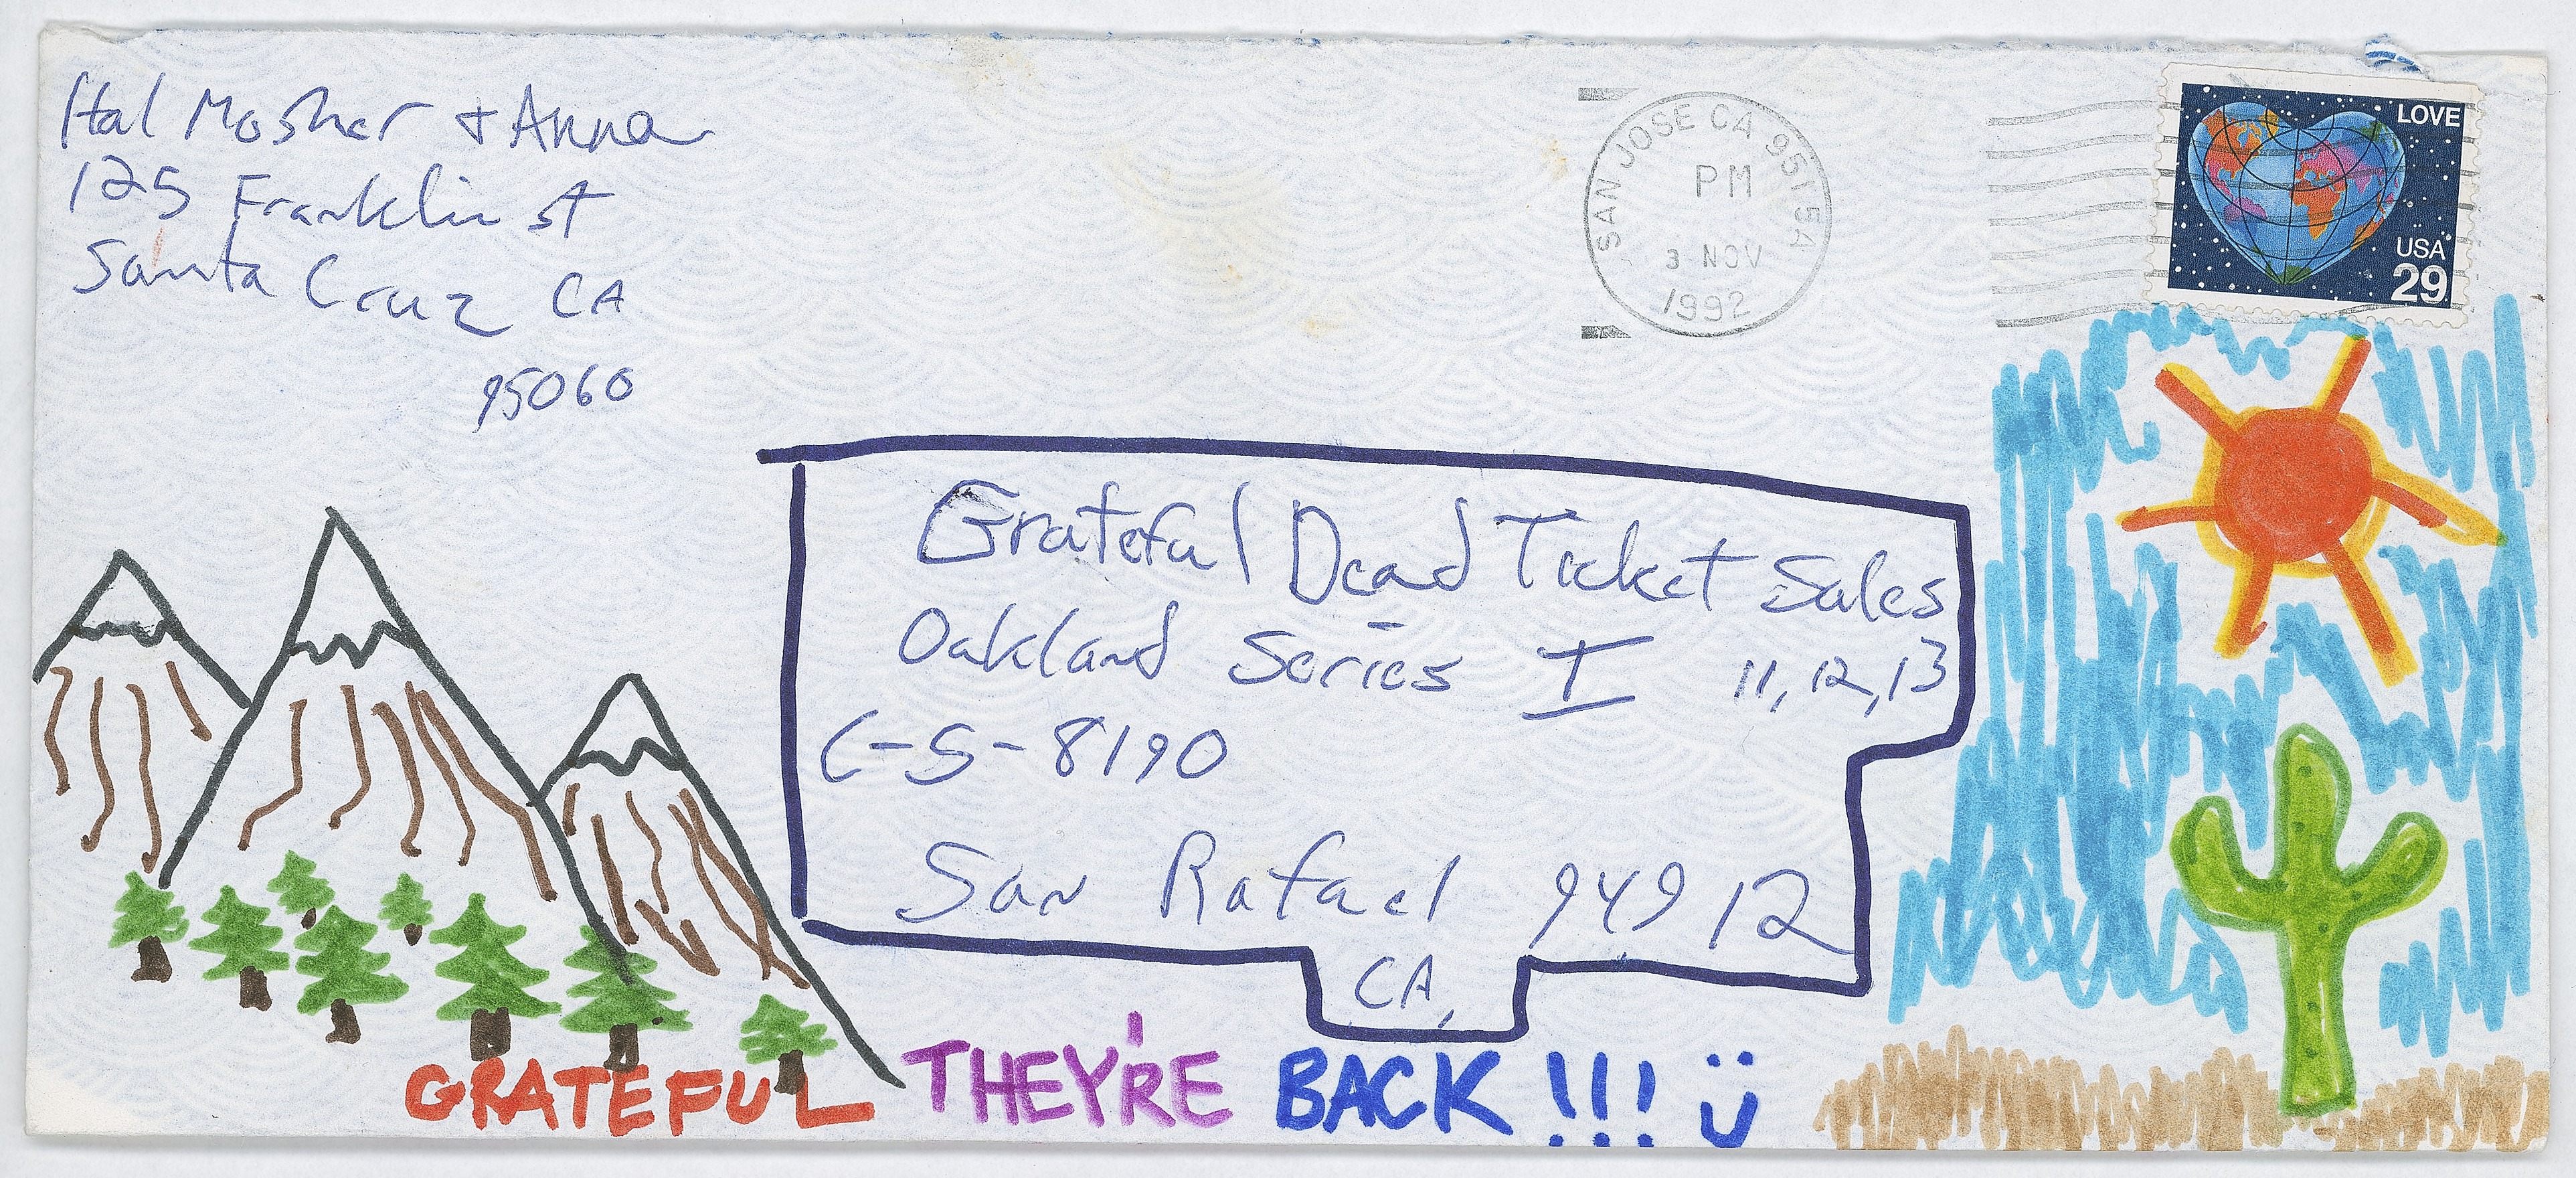 Hal Mosher + Anna
125 Franklin st
Santa Cruz CA
95060
SAN JOSE CA 951 5A
PM
3 NOV
1992
LOVE
USA
29
Grateful Dead Ticket Sales
Oakland Series I 11, 12, 13
C-S-8190
San Rafael 94912
CA,
GRATEFUL THEY'RE BACK !!!